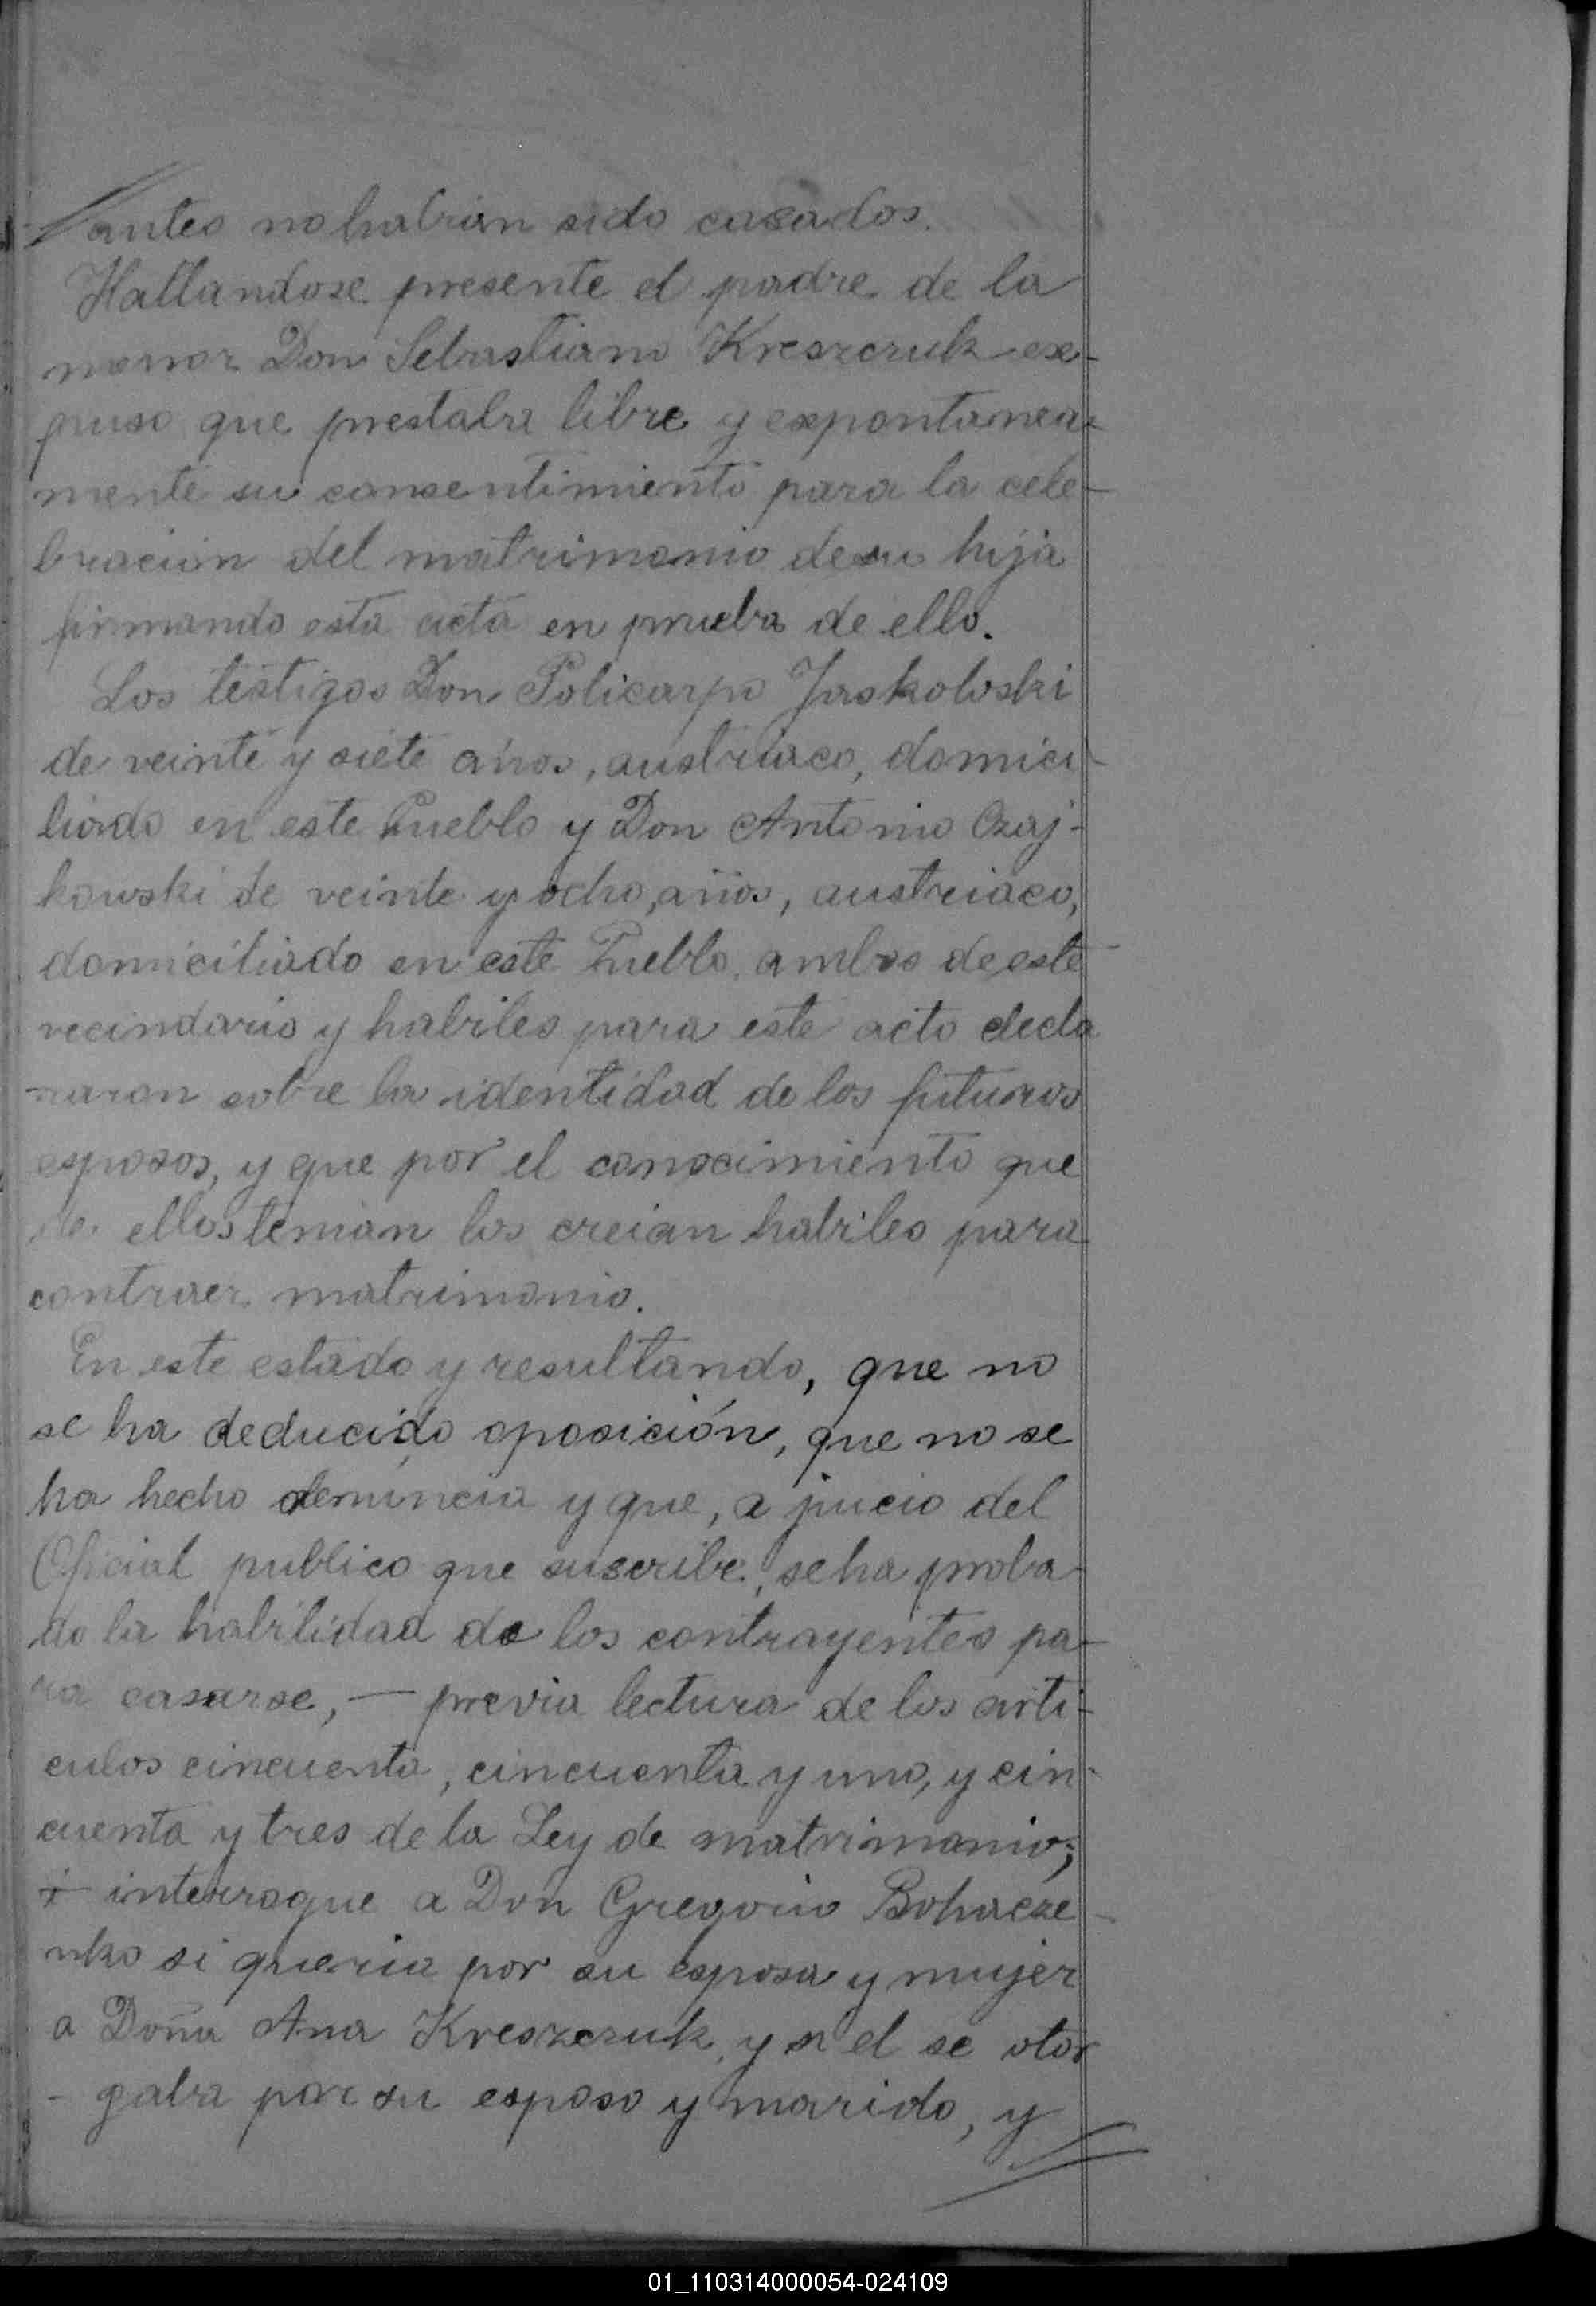 antes no habian sido casados.
Hallandose presente el padre de la
menor Don Sebastiano Kreszczuk ex-
puso que prestaba libre y expontanea-
mente su consentimiento para la cele-
bracion del matrimonio de su hija
firmando esta acta en prueba de ello.
Los testigos Don Policarpo Jaskoloski
de veinte y siete años, austriaco, domici-
liado en este Pueblo y Don Antonio Czaj-
kowski de veinte y ocho años, austriaco,
domiciliado en este Pueblo, ambos de este
vecindario y habiles para este acto decla
raron sobre la identidad de los futuros
esposos, y que por el conocimiento que
de ellos tenian los creian habiles para
contraer matrimonio.
En este estado y resultando, que no
se ha deducido oposición, que no se
ha hecho denuncia y que, a juicio del
Oficial publico que suscribe, se ha proba-
do la habilidad de los contrayentes pa-
ra casarse, — previa lectura de los arti-
culos cincuenta, cincuenta y uno, y cin-
cuenta y tres de la Ley de matrimonio;
interrogue a Don Gregorio Bohacze-
nko si queria por su esposa y mujer
a Doña Ana Kreszczuk, y si el se otor
- gaba por su esposo y marido, y
01_110314000054-024109